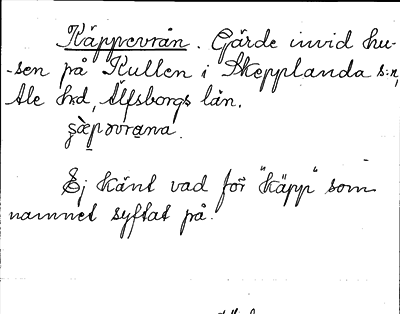 Käppevrån. Gärde invid hu-
-sen på Kullen i Skepplanda s:n,
Ale hrd, Älfsborgs län.
şæ̀pəvrana.
Ej känt vad för "käpp" som
namnet syftat på.